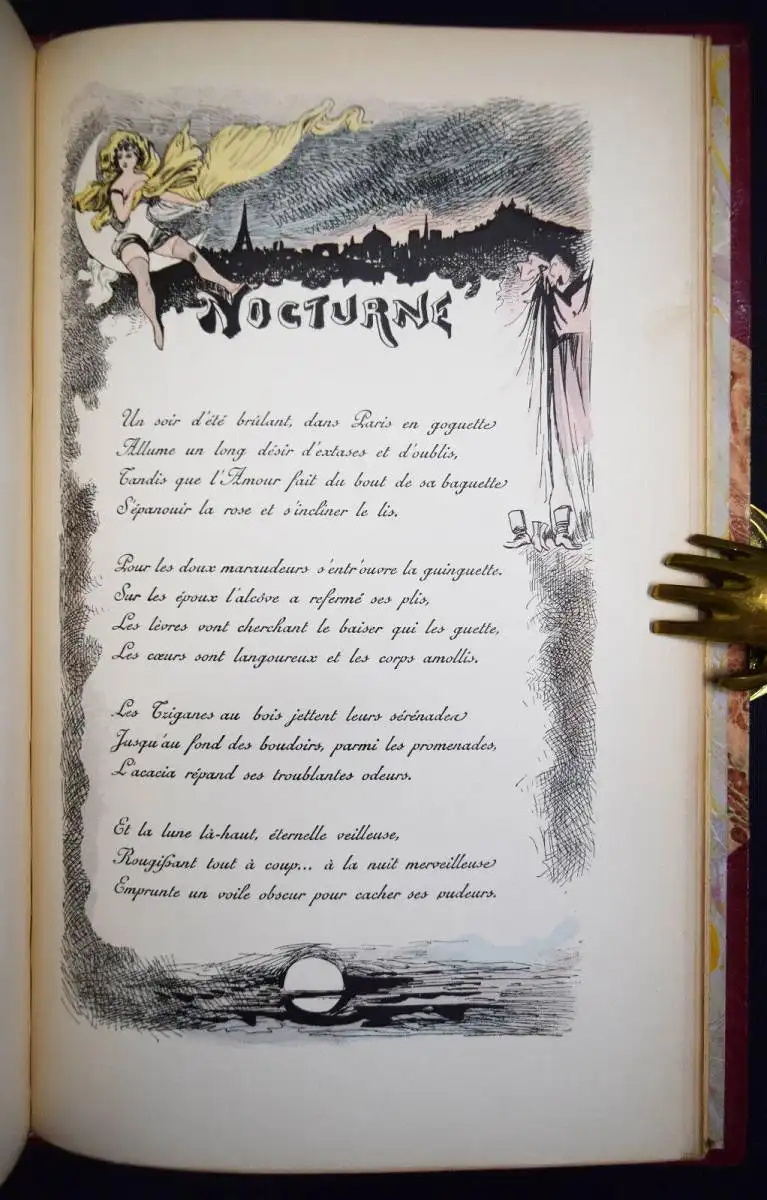 NOCTURNE
Un soir d'été brûlant, dans Paris en goguette
Allume un long désir d'extases et d'oublis,
Tandis que l'Amour fait du bout de sa baguette
S'épanouir la rose et s'incliner le lis.
Pour les doux maraudeurs s'entr'ouvre la guinguette.
Sur les époux l'alcôve a refermé ses plis,
Les lèvres vont cherchant le baiser qui les guette,
Les cœurs sont langoureux et les corps amollis.
Les Tziganes au bois jettent leurs sérénades
Jusqu'au fond des boudoirs, parmi les promenades,
L'acacia répand ses troublantes odeurs.
Et la lune là-haut, éternelle veilleuse,
Rougissant tout à coup... à la nuit merveilleuse
Emprunte un voile obscur pour cacher ses pudeurs.